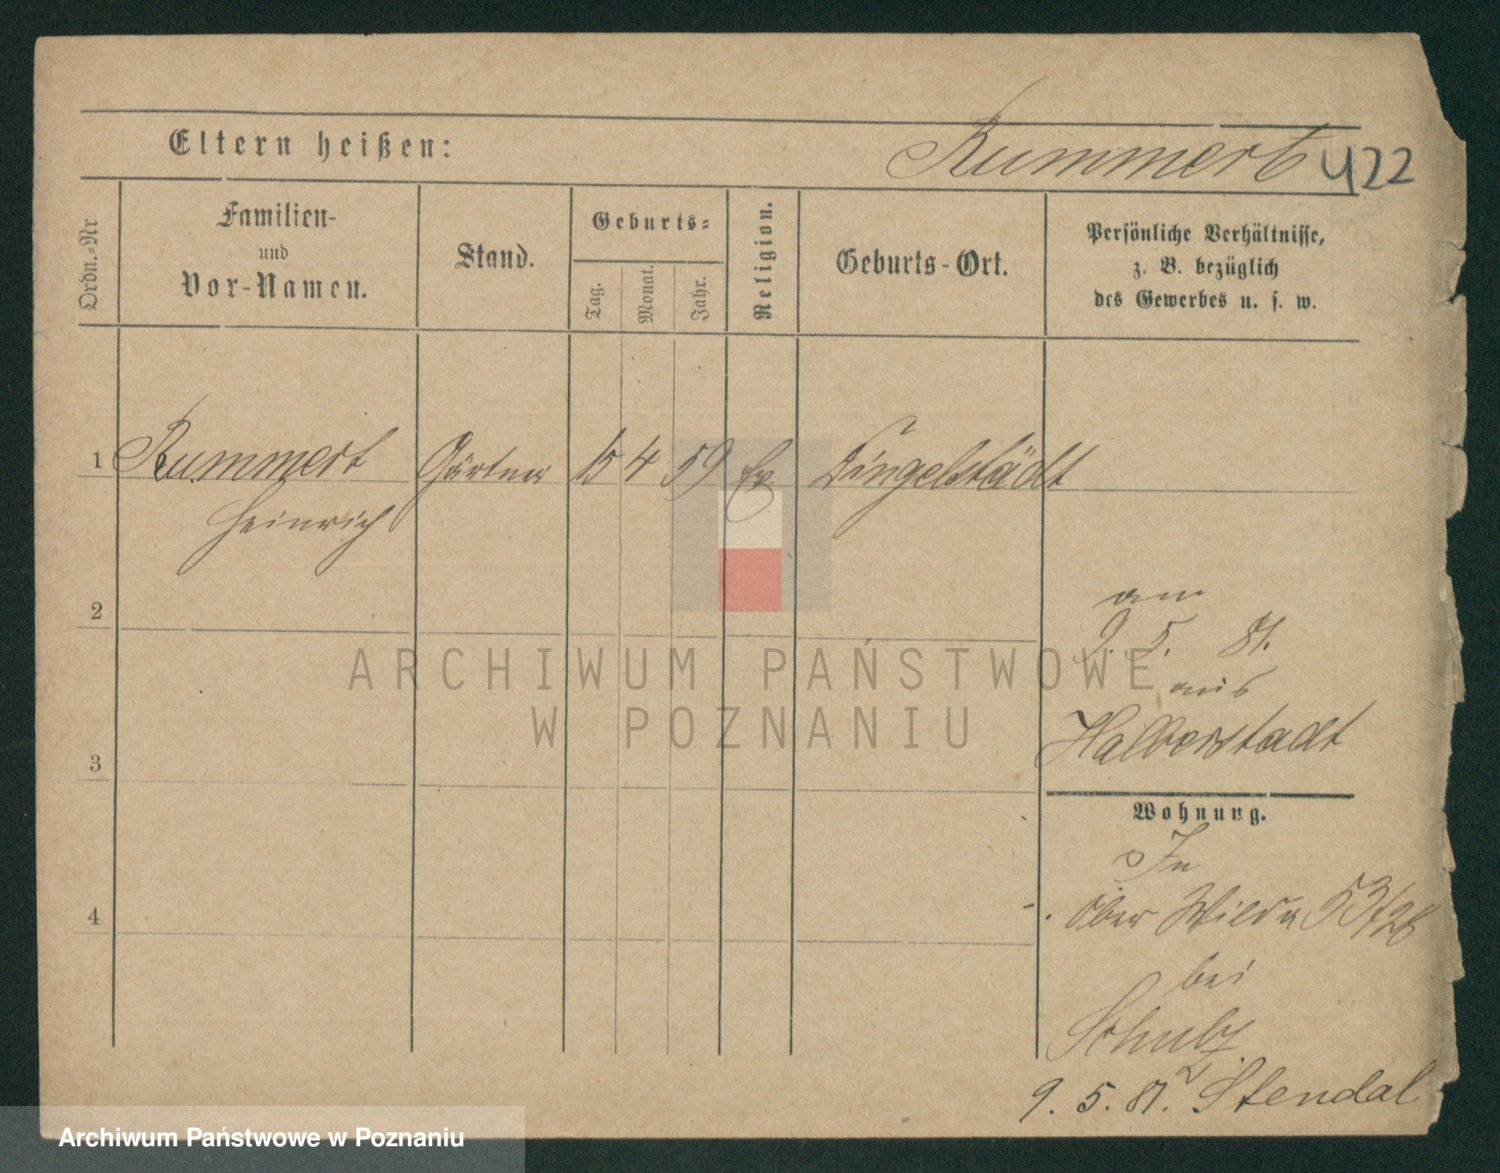 Eltern heißen:
Rummert 422
Ordn.-Nr
Familien-
und
Vor-Namen.
Stand.
Geburts-
Tag.
Monat.
Jahr.
Religion.
Geburts-Ort.
Persönliche Verhältnisse,
z. B. bezüglich
des Gewerbes u. s. w.
1 Rummert Gärtner 15 4 59 Ev. Dingelstädt
Heinrich
2
am
9. 5. 81.
aus
Halberstadt
3
Wohnung.
In
Ober Wilda 53/
4
bei
Schulz
9. 5. 81. Stendal
ARCHIWUM PAŃSTWOWE
W POZNANIU
Archiwum Państwowe w Poznaniu